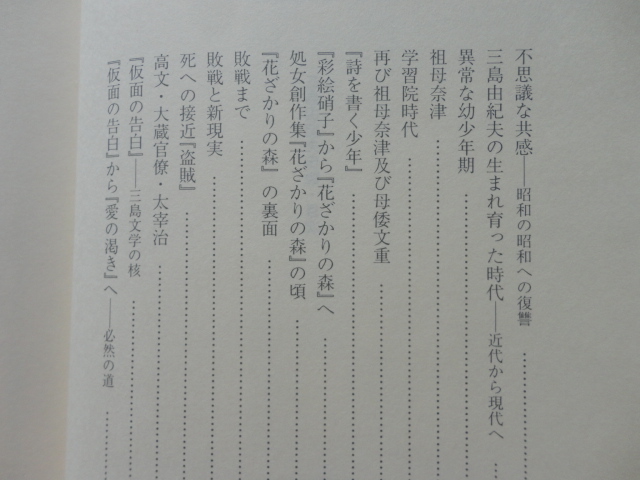 不思議な共感――昭和の昭和への復讐
三島由紀夫の生まれ育った時代――近代から現代へ
異常な幼少年期
祖母奈津
学習院時代
再び祖母奈津及び母倭文重
『詩を書く少年』
『彩絵硝子』から『花ざかりの森』へ
処女創作集『花ざかりの森』の頃
『花ざかりの森』の裏面
敗戦まで
敗戦と新現実
死への接近『盗賊』
高文・大蔵官僚・太宰治
『仮面の告白』――三島文学の核
『仮面の告白』から『愛の渇き』へ――必然の道